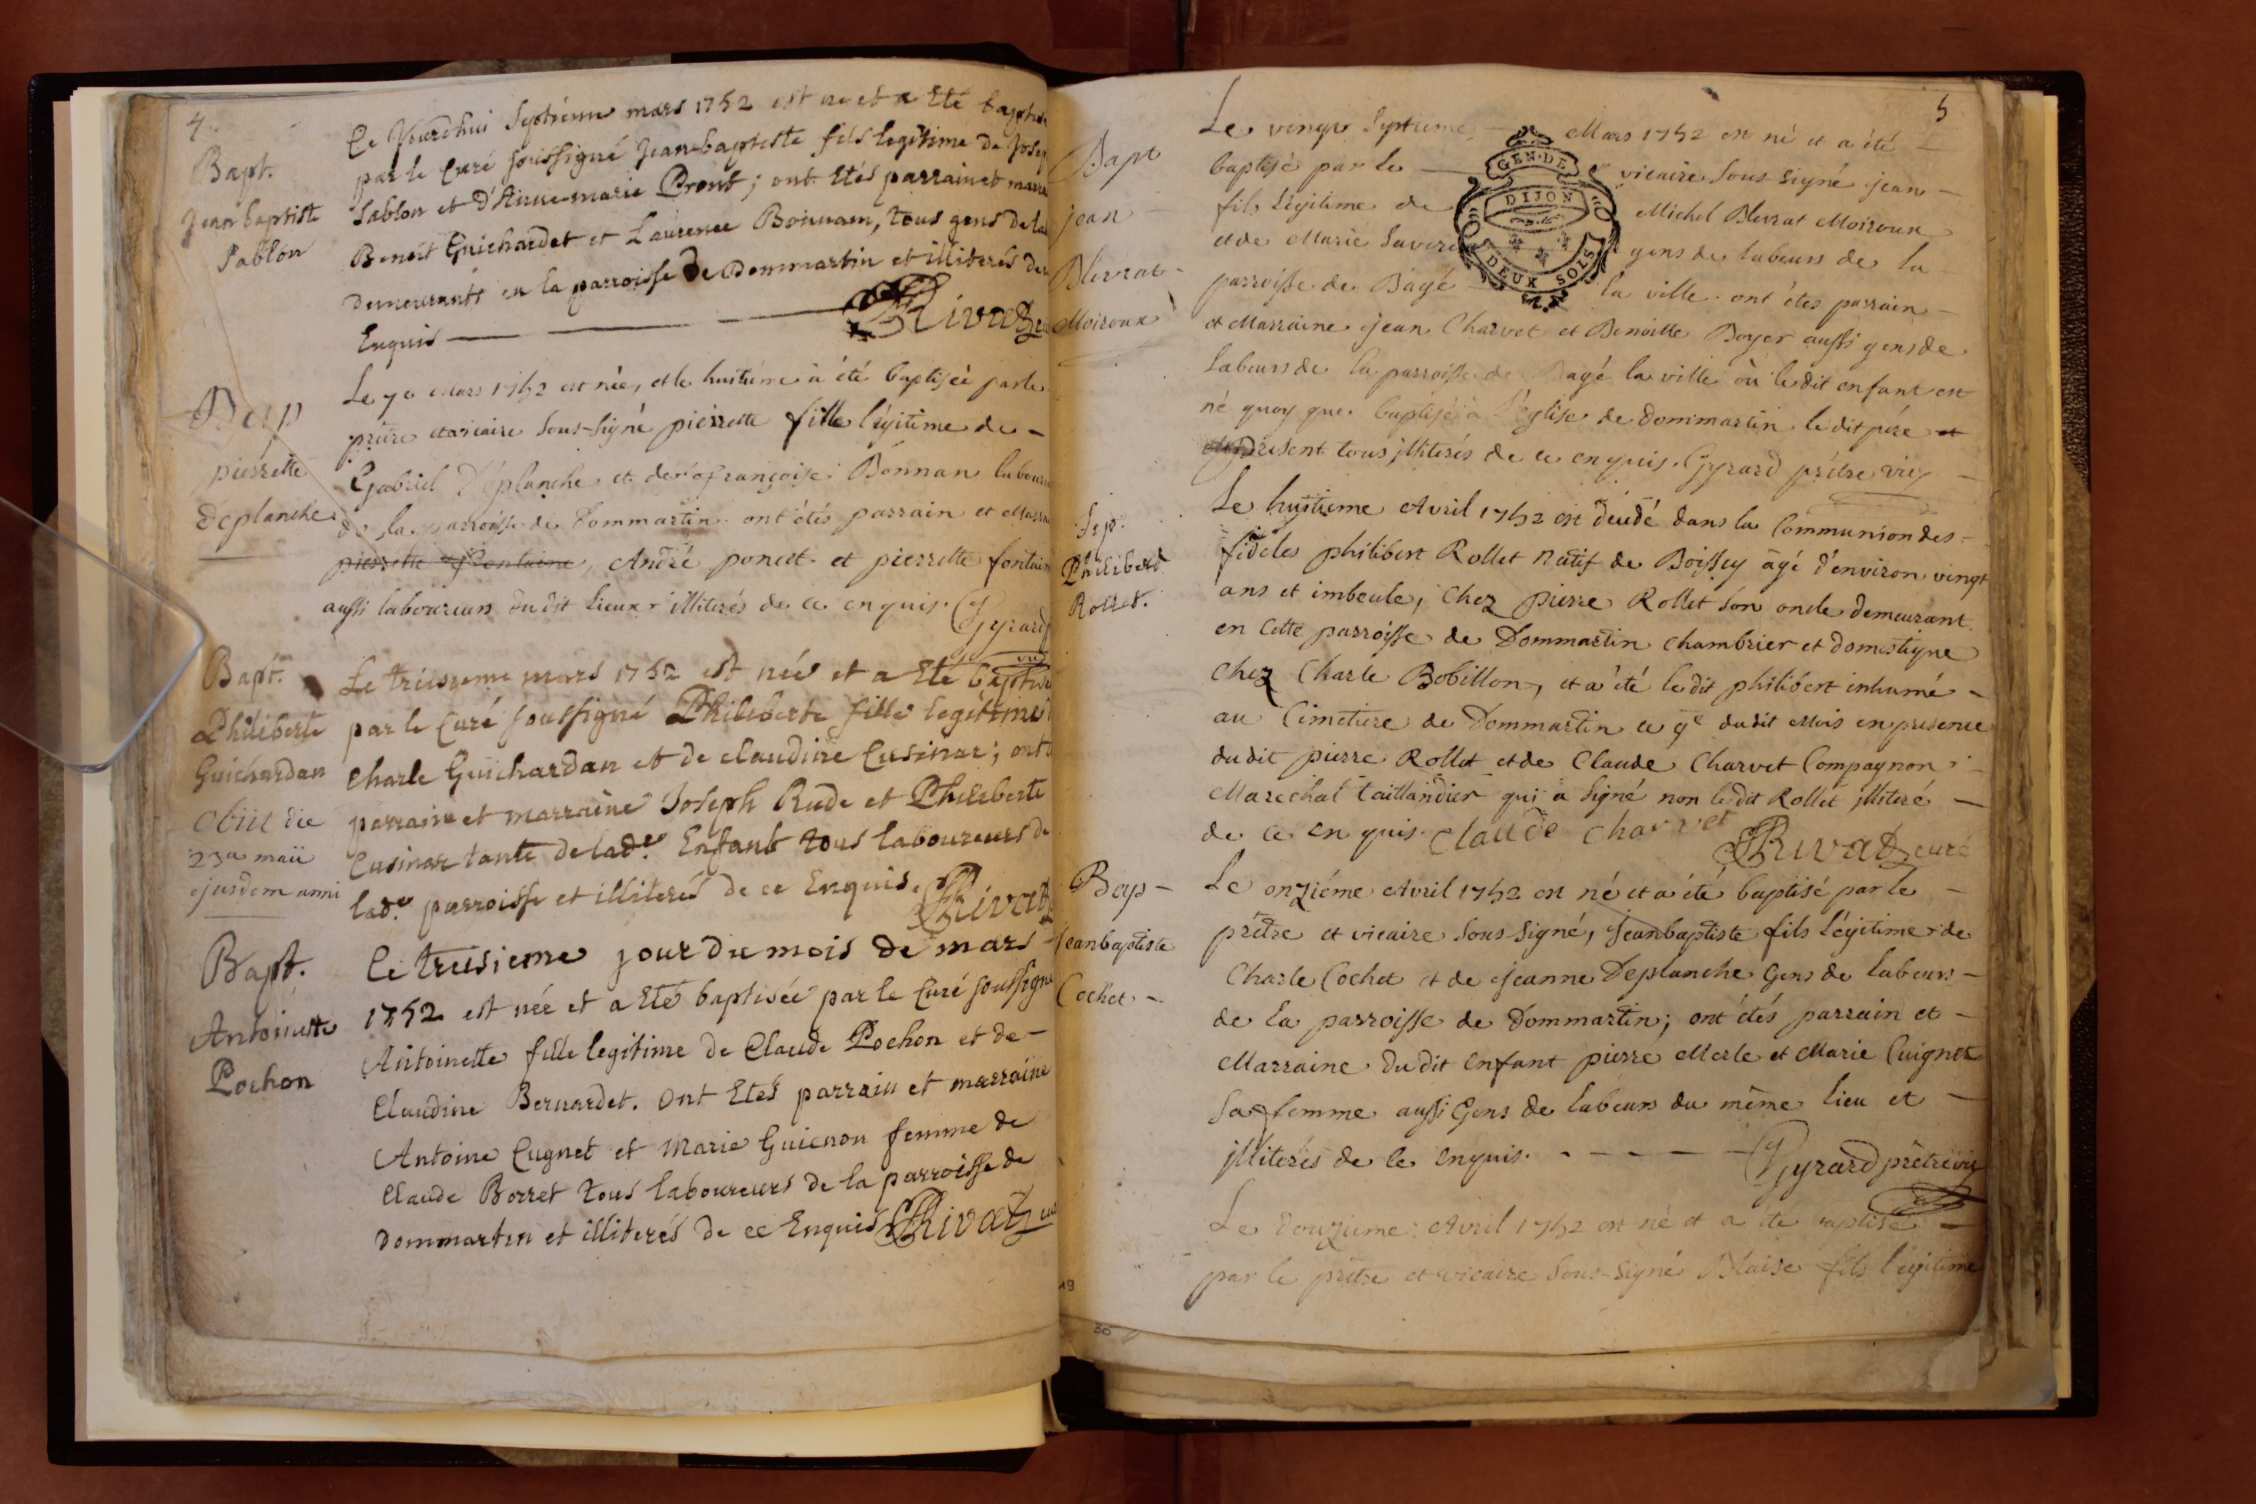 4.
Bapt.
jean baptiste
Sablon
Ce Jourdhui Septiéme mars 1752 est né et a Eté baptisé
par le Curé soussigné Jean baptiste fils legitime de Josep
Sablon et d'Anne marie Pront; ont Etés parrain et marra
Benoit Guichardet et Laurence Bonnam, tous gens de la
demeurants en la parroisse De Dommartin et illiterés de
Enquis Rivat
Bap
pierrette
deplanche
Le 7e Mars 1752 est née, et le huitiéme à été baptiseé par le
prêtre et vicaire sous-signé pierrette fille légitime de -
Gabriel Déplanche et de françoise Bonnan laboure
de la parroisse de Dommartin ont étés parrain et Marra
pierrette fontaine, André poncet et pierrette fontain
aussi laboureurs du dit Lieux illiterés de ce enquis. Gyrard
Bapt.
Philiberte
Guichardan
Obiit die
23a maii
ejusdem anni
Le treisieme mars 1752 est née et a Eté baptisé
par le Curé soussigné Philiberte fille legitime
Charle Guichardan et de claudine Cusinar; ont
parrain et marraine Joseph Rude et Philiberte
Cusinar tante de lade. Enfant tous laboureurs de
lade. parroisse et illiterés de ce Enquis. Rivat
Bapt.
Antoinette
Pochon
Ce treisieme jour du mois de mars
1752 est née et a Eté baptisée par le Curé soussigné
Antoinette fille legitime de Claude Pochon et de -
Claudine Bernardet. Ont Etés parrain et marraine
Antoine Cugnet et Marie Guienon femme de
Claude Borret tous laboureurs de la parroisse de
Dommartin et illiterés de ce Enquis Rivat
5
Bapt
jean
Blevrat
Moiroux
Le vingt Septiéme Mars 1752 est né et a été
baptisé par le vicaire sous-signé jean
fils légitime de Michel Blevrat Moiroux
et de Marie gens de labeurs de la
parroisse de Bâgé la ville. ont étés parrain
et Marraine jean Charvet et Benoitte Boyer aussi gens de
labeurs de la parroisse de Bagé la ville où le dit enfant est
né quoy que baptisé à l'église de Dommartin le dit pére
present tous illiterés de ce enquis. Gyrard prêtre vic
GEN. DE
DIJON
DEUX SOLS
Sep.
Philibert
Rollet.
Le huitieme Avril 1752 est décédé dans la Communion des
fidéles philibert Rollet natif de Boissey âgé d'environ vingt
ans et imbecile, chez pierre Rollet son oncle demeurant
en cette parroisse de Dommartin chambrier et domestique
chez Charle Bobillon, et a été le dit philibert inhumé
au Cimetiere de Dommartin ce 9e dudit Mois en presence
dudit pierre Rollet et de Claude Charvet Compagnon
Marechal taillandier qui a signé non le dit Rollet illiteré
de ce enquis. claude charvet
Rivat curé
Bap -
jeanbaptiste
Cochet -
Le onziéme Avril 1752 est né et a été baptisé par le
prêtre et vicaire sous-signé, jeanbaptiste fils légitime de
Charle Cochet et de jeanne Deplanche Gens de labeurs -
de la parroisse de Dommartin; ont étés parrain et
Marraine dudit enfant pierre Merle et Marie Cuignet
sa femme aussi Gens de labeurs du même lieu et
illiterés de ce enquis. Gyrard prêtre vic
Le douziéme Avril 1752 est né et a été baptisé
par le prêtre et vicaire sous-signé Blaise fils légitime
19
30